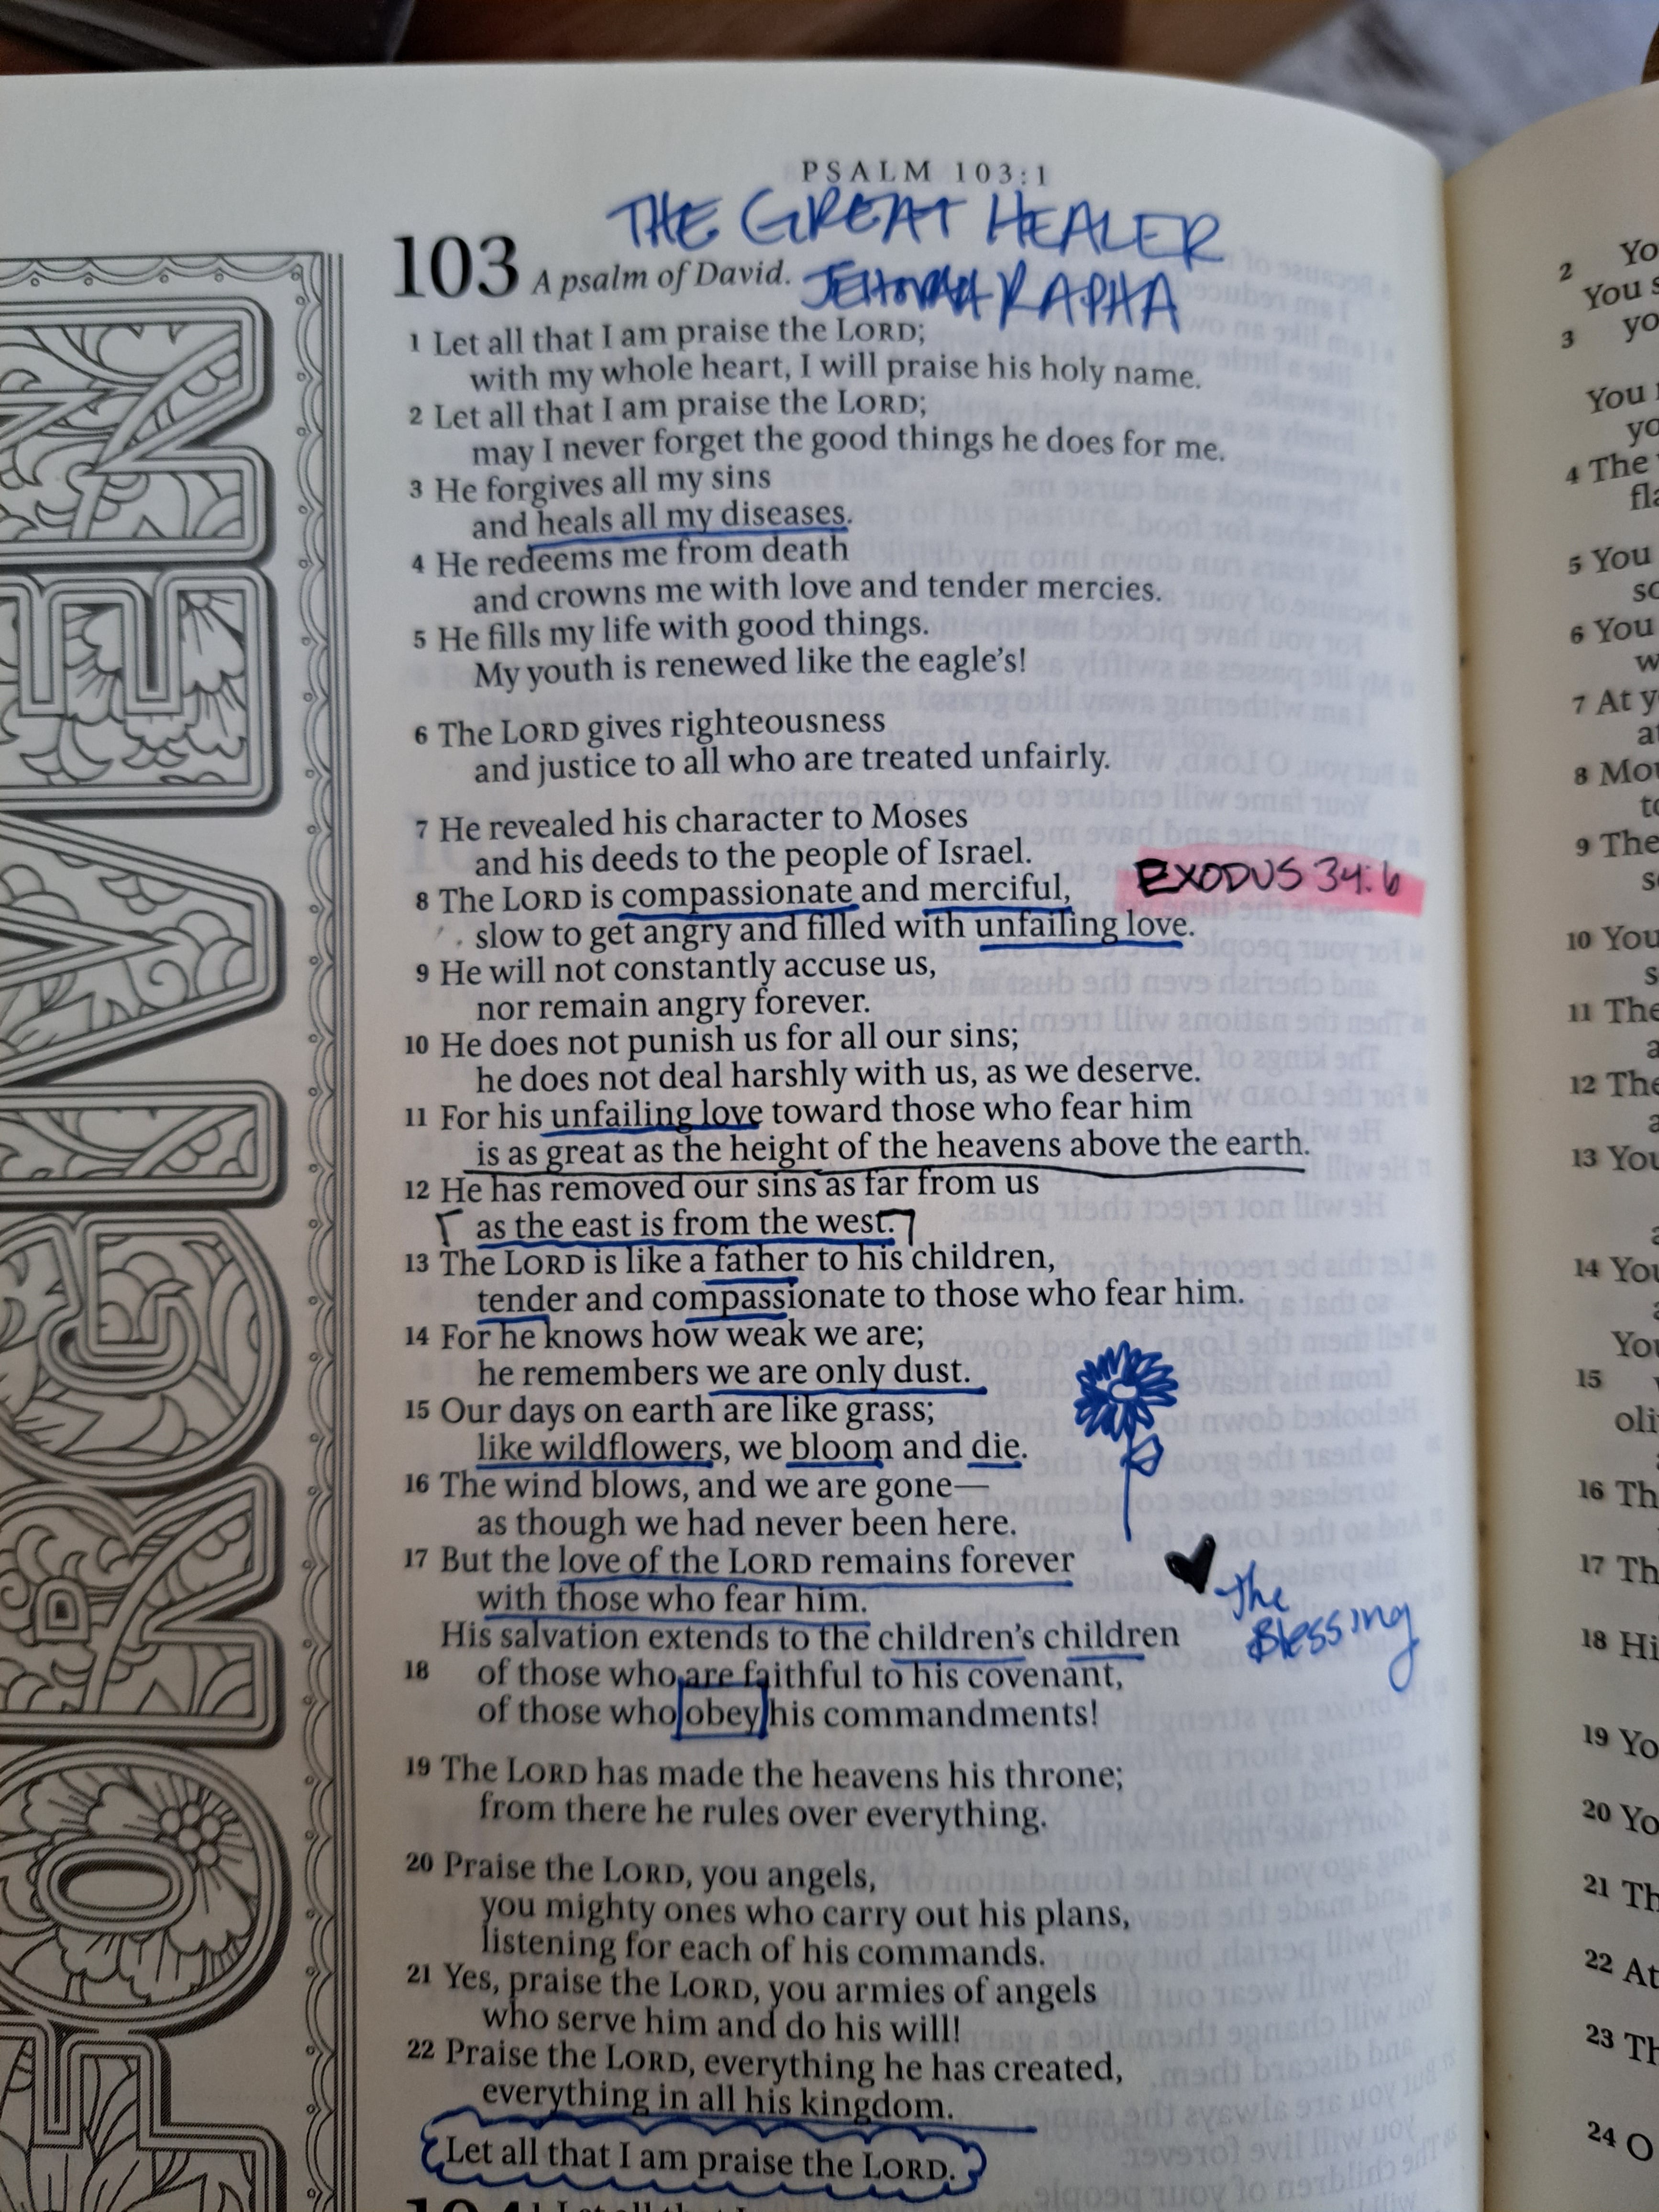 PSALM 103:1
THE GREAT HEALER
103 A psalm of David. JEHOVAH RAPHA
1 Let all that I am praise the LORD;
with my whole heart, I will praise his holy name.
2 Let all that I am praise the LORD;
may I never forget the good things he does for me.
3 He forgives all my sins
and heals all my diseases.
4 He redeems me from death
and crowns me with love and tender mercies.
5 He fills my life with good things.
My youth is renewed like the eagle's!
6 The LORD gives righteousness
and justice to all who are treated unfairly.
7 He revealed his character to Moses
and his deeds to the people of Israel.
EXODUS 34:6
8 The LORD is compassionate and merciful,
slow to get angry and filled with unfailing love.
9 He will not constantly accuse us,
nor remain angry forever.
10 He does not punish us for all our sins;
he does not deal harshly with us, as we deserve.
11 For his unfailing love toward those who fear him
is as great as the height of the heavens above the earth.
12 He has removed our sins as far from us
as the east is from the west.
13 The LORD is like a father to his children,
tender and compassionate to those who fear him.
14 For he knows how weak we are;
he remembers we are only dust.
15 Our days on earth are like grass;
like wildflowers, we bloom and die.
16 The wind blows, and we are gone—
as though we had never been here.
17 But the love of the LORD remains forever
with those who fear him.
The
Blessing
His salvation extends to the children's children
18 of those who are faithful to his covenant,
of those who obey his commandments!
19 The LORD has made the heavens his throne;
from there he rules over everything.
20 Praise the LORD, you angels,
you mighty ones who carry out his plans,
listening for each of his commands.
21 Yes, praise the LORD, you armies of angels
who serve him and do his will!
22 Praise the LORD, everything he has created,
everything in all his kingdom.
Let all that I am praise the LORD.
2 Yo
You
3
You
4 The
5 You
6 You
7 At
8
9 The
10 You
11 The
12 The
13 You
14 You
You
15
16 Th
17 Th
18 Hi
19 Yo
20 Yo
21 Th
22 At
23 Th
24 O